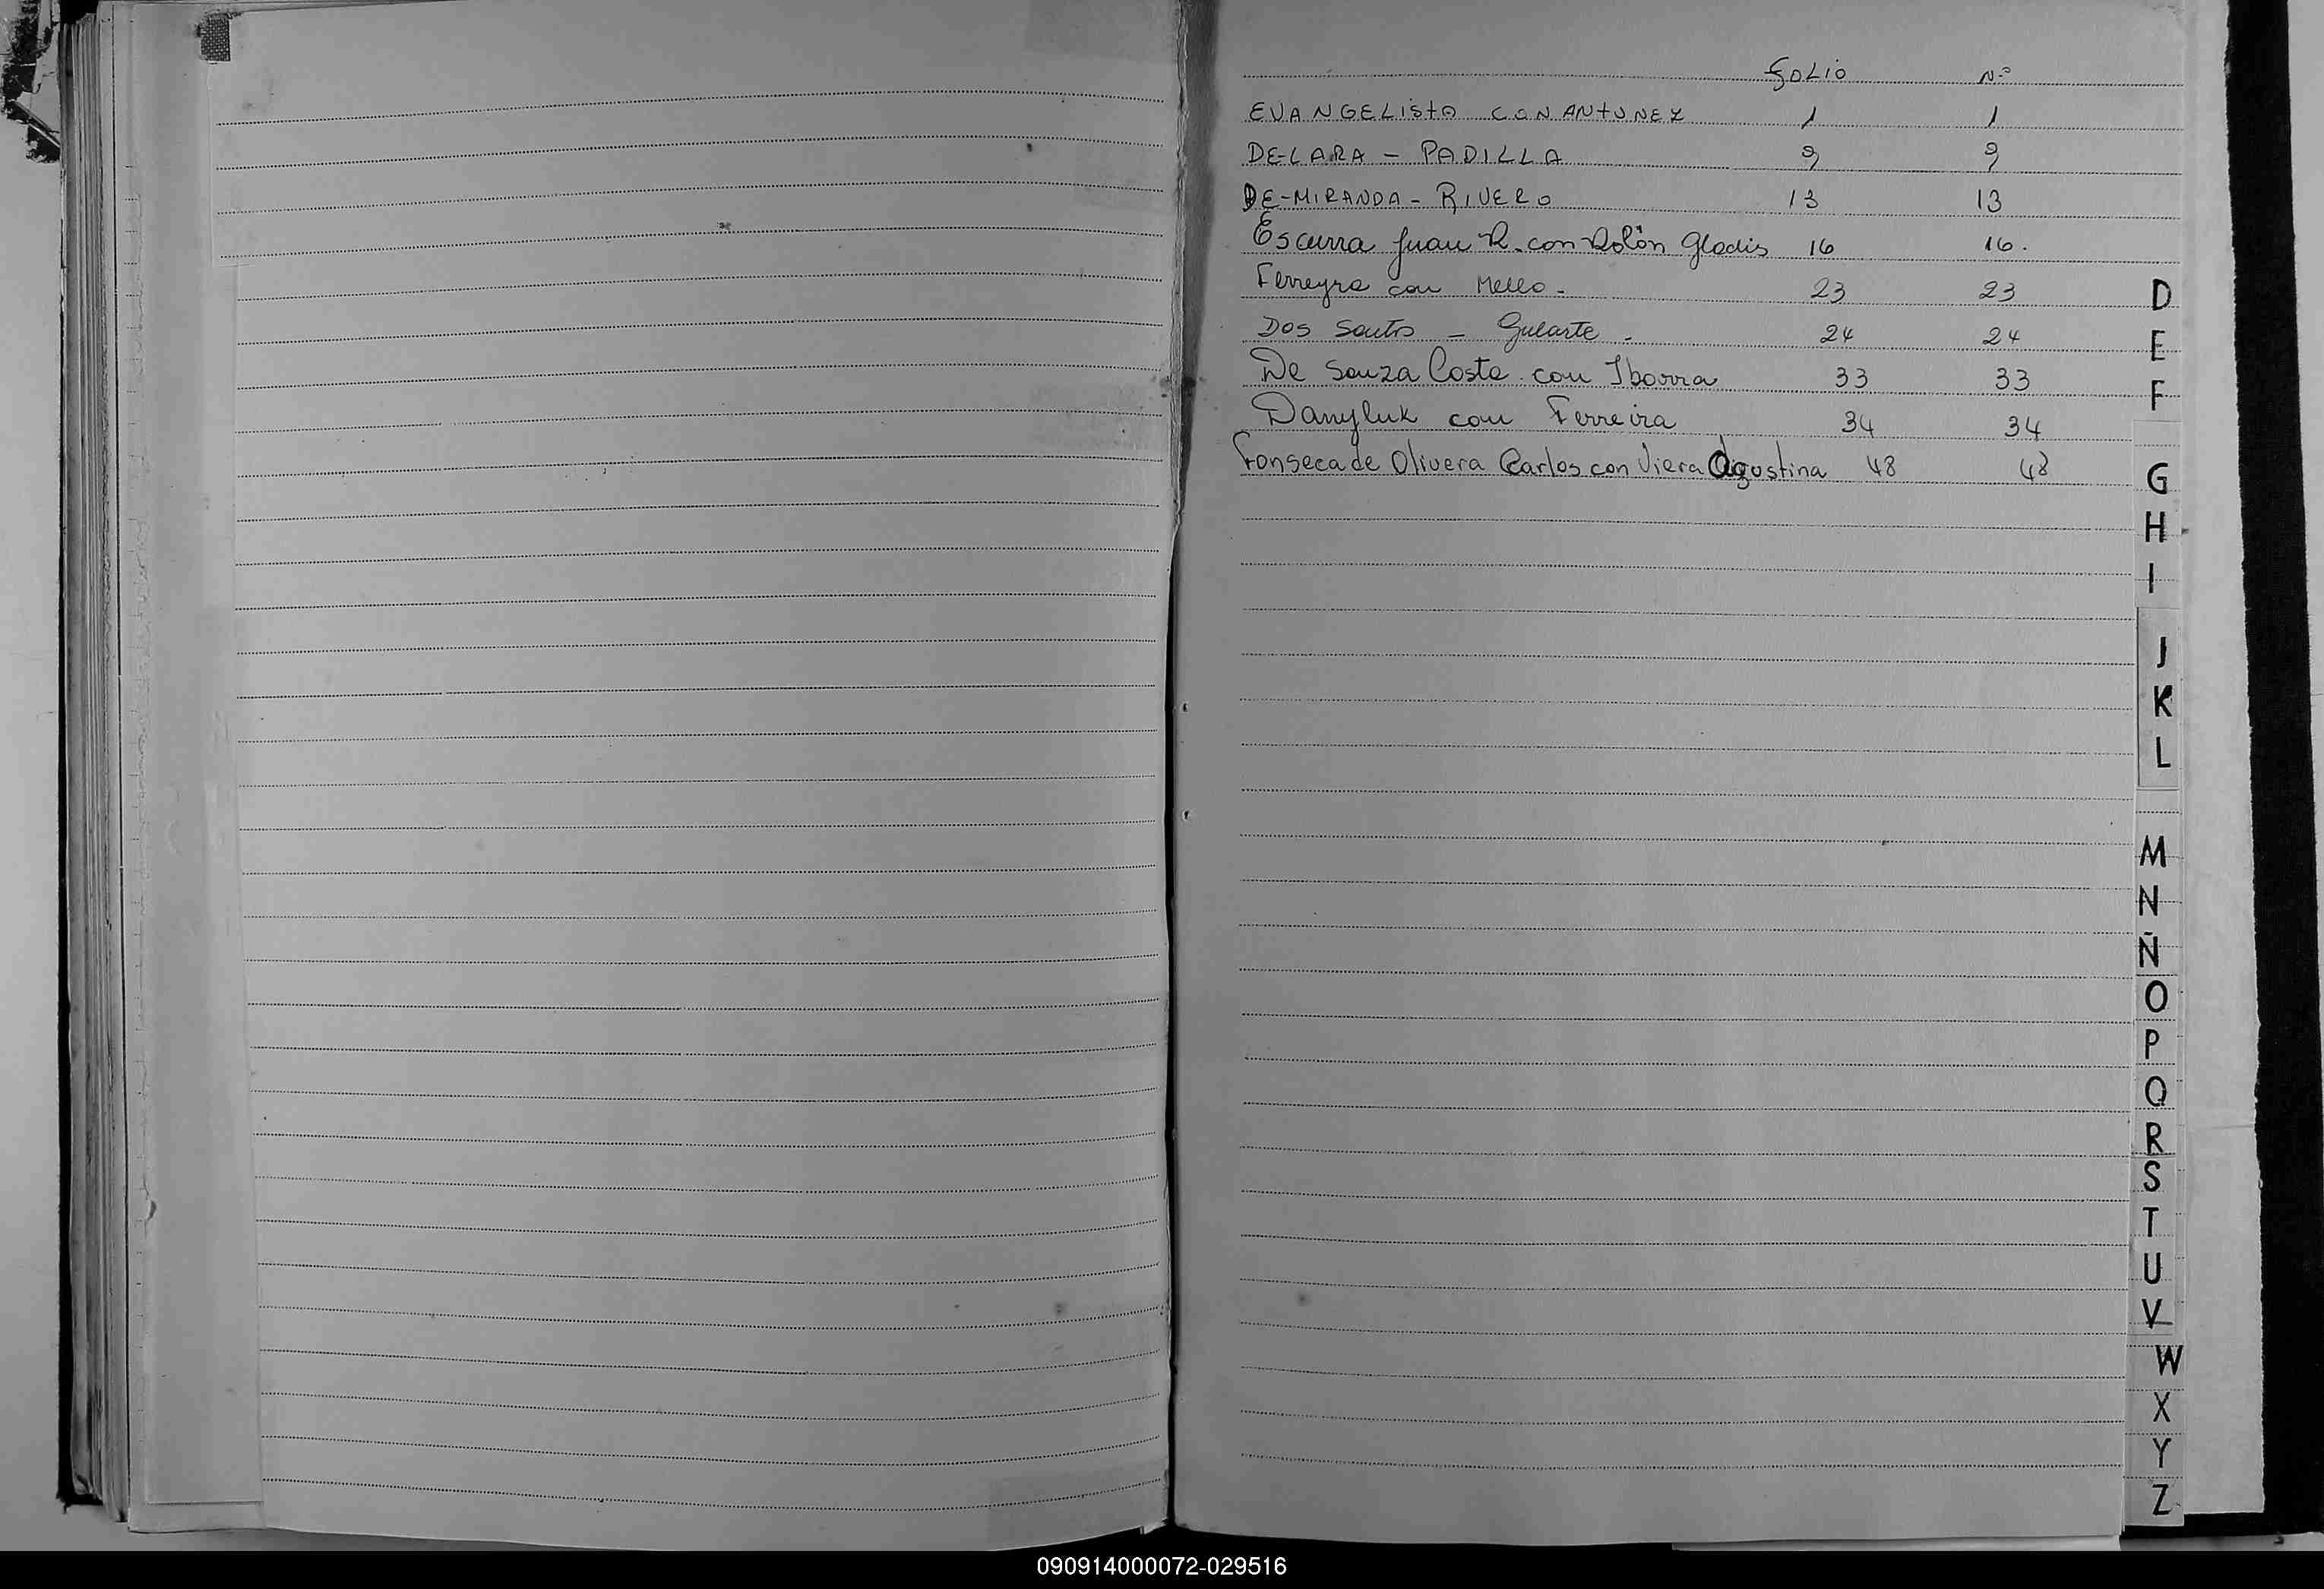 FOLIO N.º
EVANGELISTA CON ANTUNEZ 1 1
DE-LARA - PADILLA 9 9
DE-MIRANDA - RIVERO 13 13
Escurra Juan R. con Rolón Gladis 16 16.
Ferreyra con Mello - 23 23
Dos Santos - Gularte - 24 24
De Souza Costa con Ibarra 33 33
Danyluk con Ferreira 34 34
Fonseca de Olivera Carlos con Viera Agustina 48 48
D
E
F
G
H
I
J
K
L
M
N
Ñ
O
P
Q
R
S
T
U
V
W
X
Y
Z
090914000072-029516